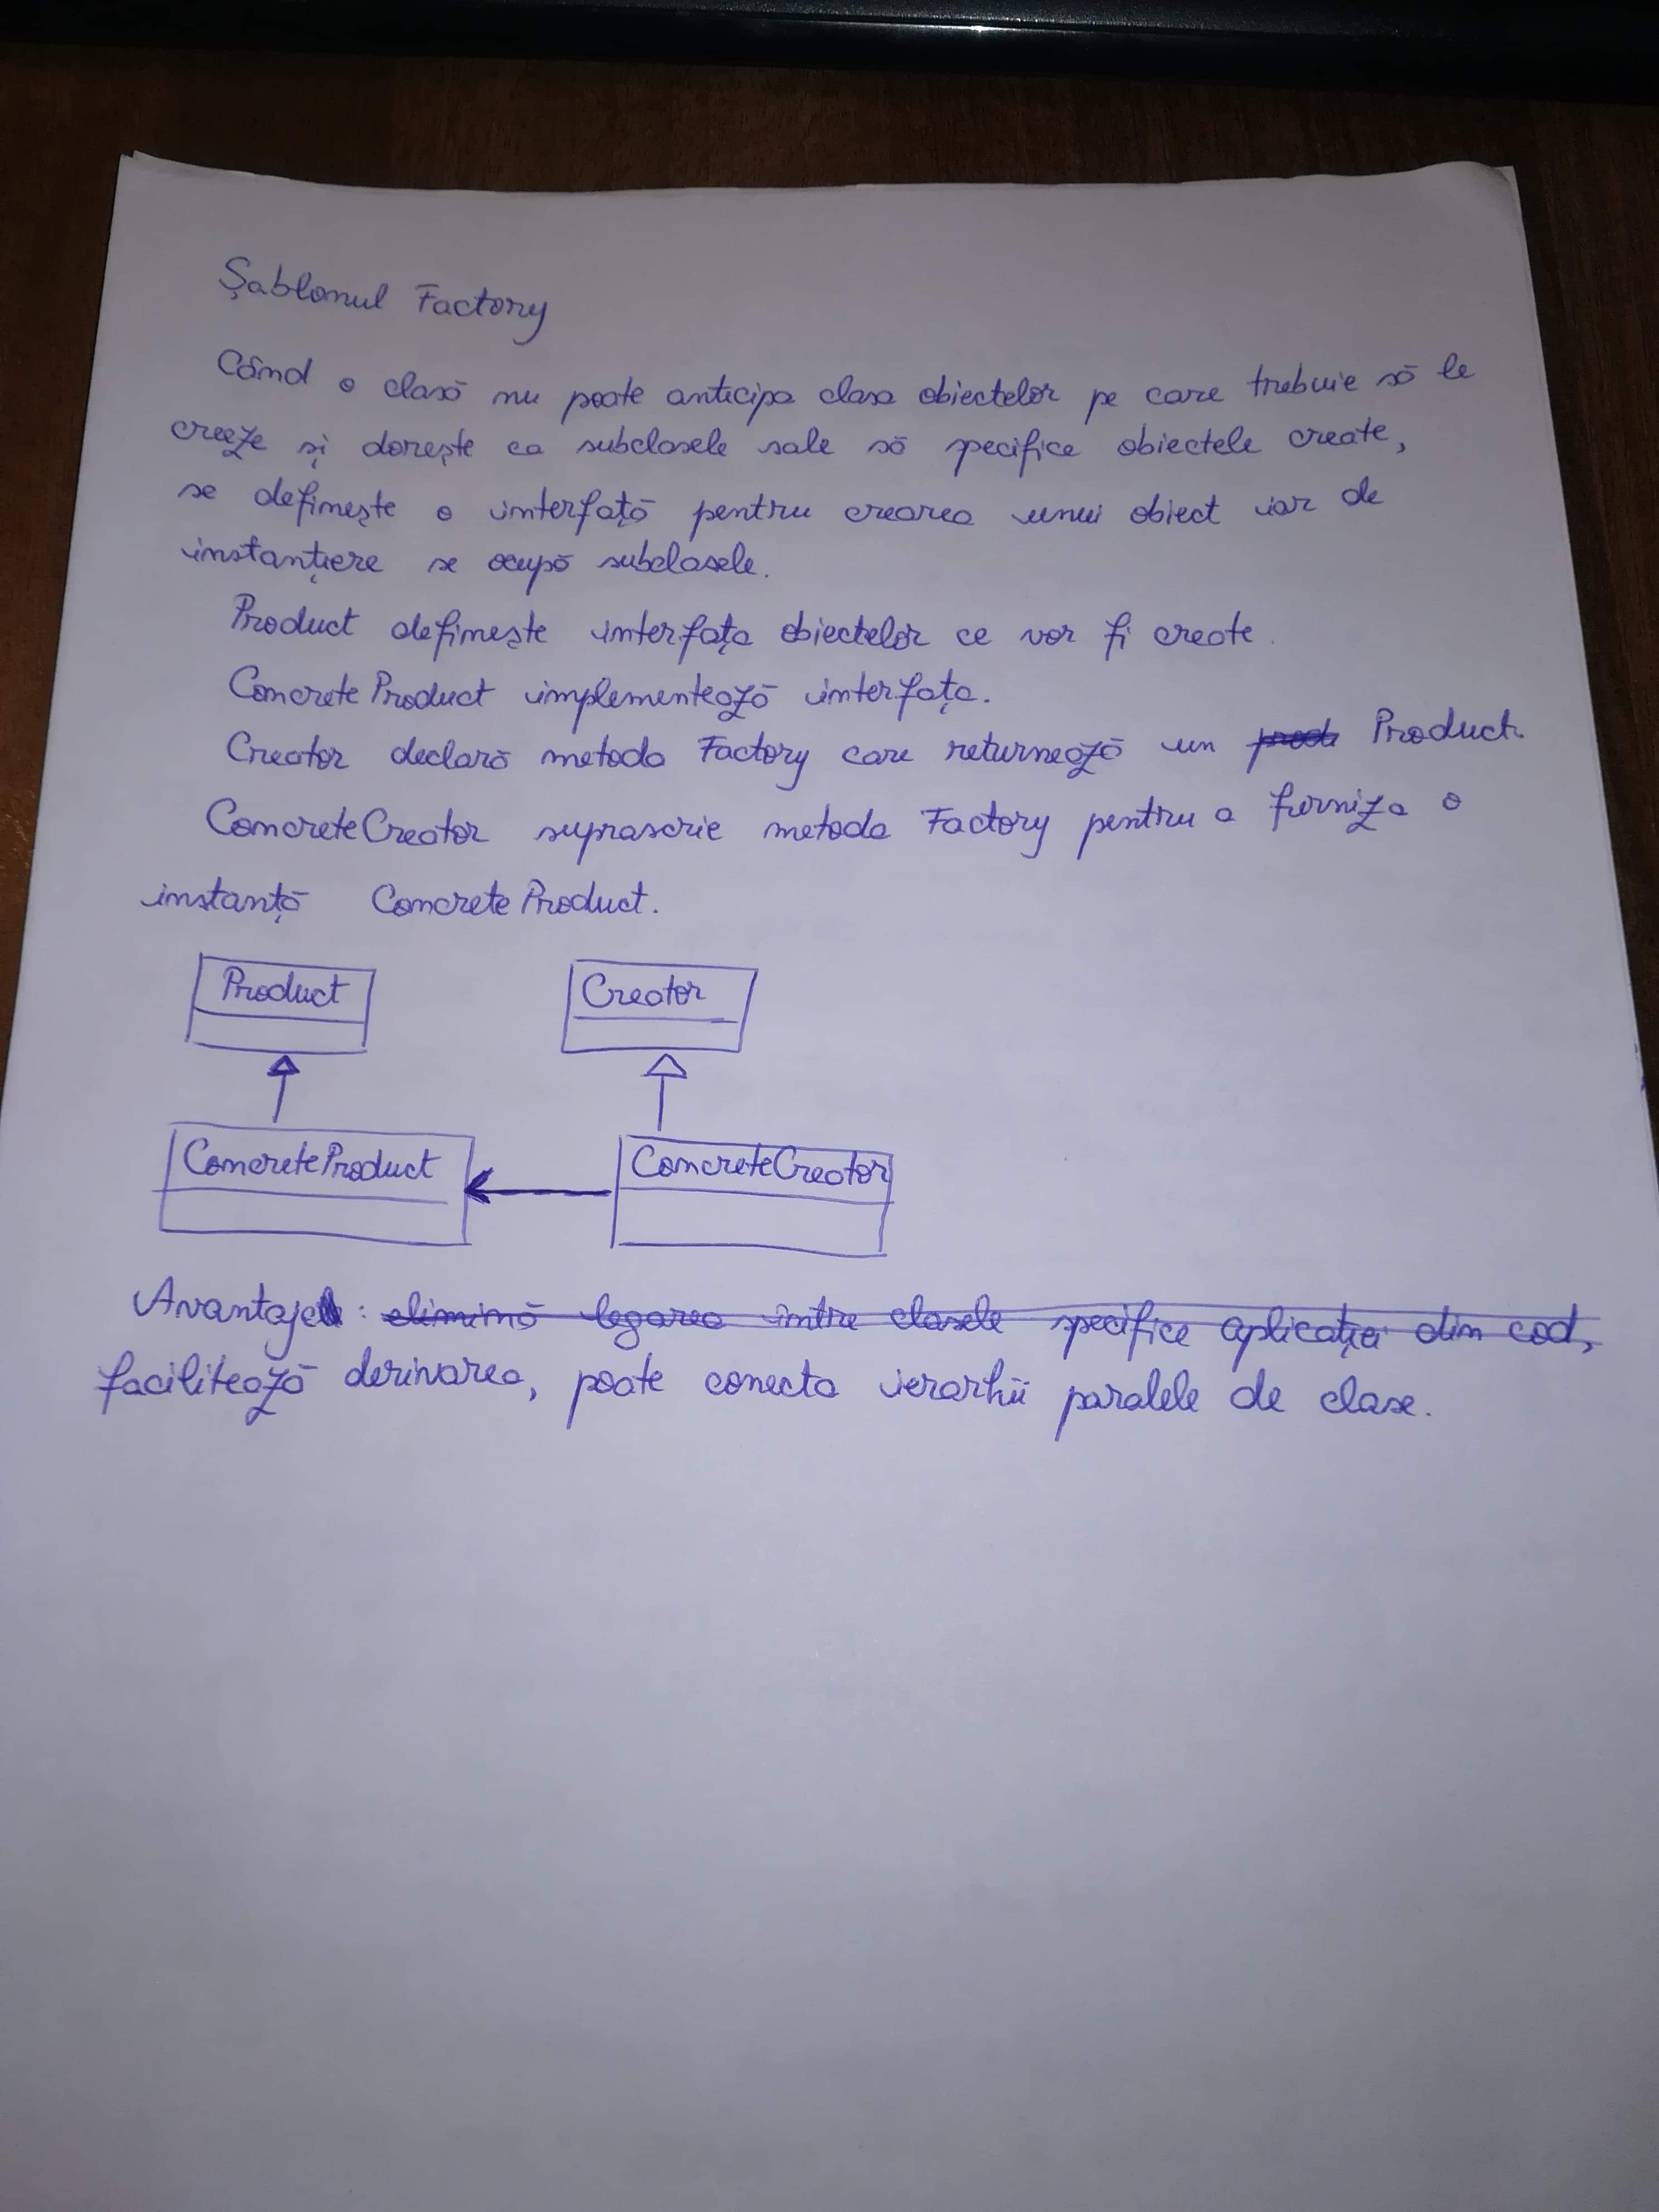 Șablonul Factory
Când o clasă nu poate anticipa clasa obiectelor pe care trebuie să le
creeze și dorește ca subclasele sale să specifice obiectele create,
se definește o interfață pentru crearea unui obiect iar de
instanțiere se ocupă subclasele.
Product definește interfața obiectelor ce vor fi create.
ConcreteProduct implementează interfața.
Creator declară metoda Factory care returnează un prod Product.
ConcreteCreator suprascrie metoda Factory pentru a furniza o
instanță ConcreteProduct.
Product Creator
ConcreteProduct ConcreteCreator
Avantaje: elimină legarea intre clasele specifice aplicației din cod,
facilitează derivarea, poate conecta ierarhii paralele de clase.